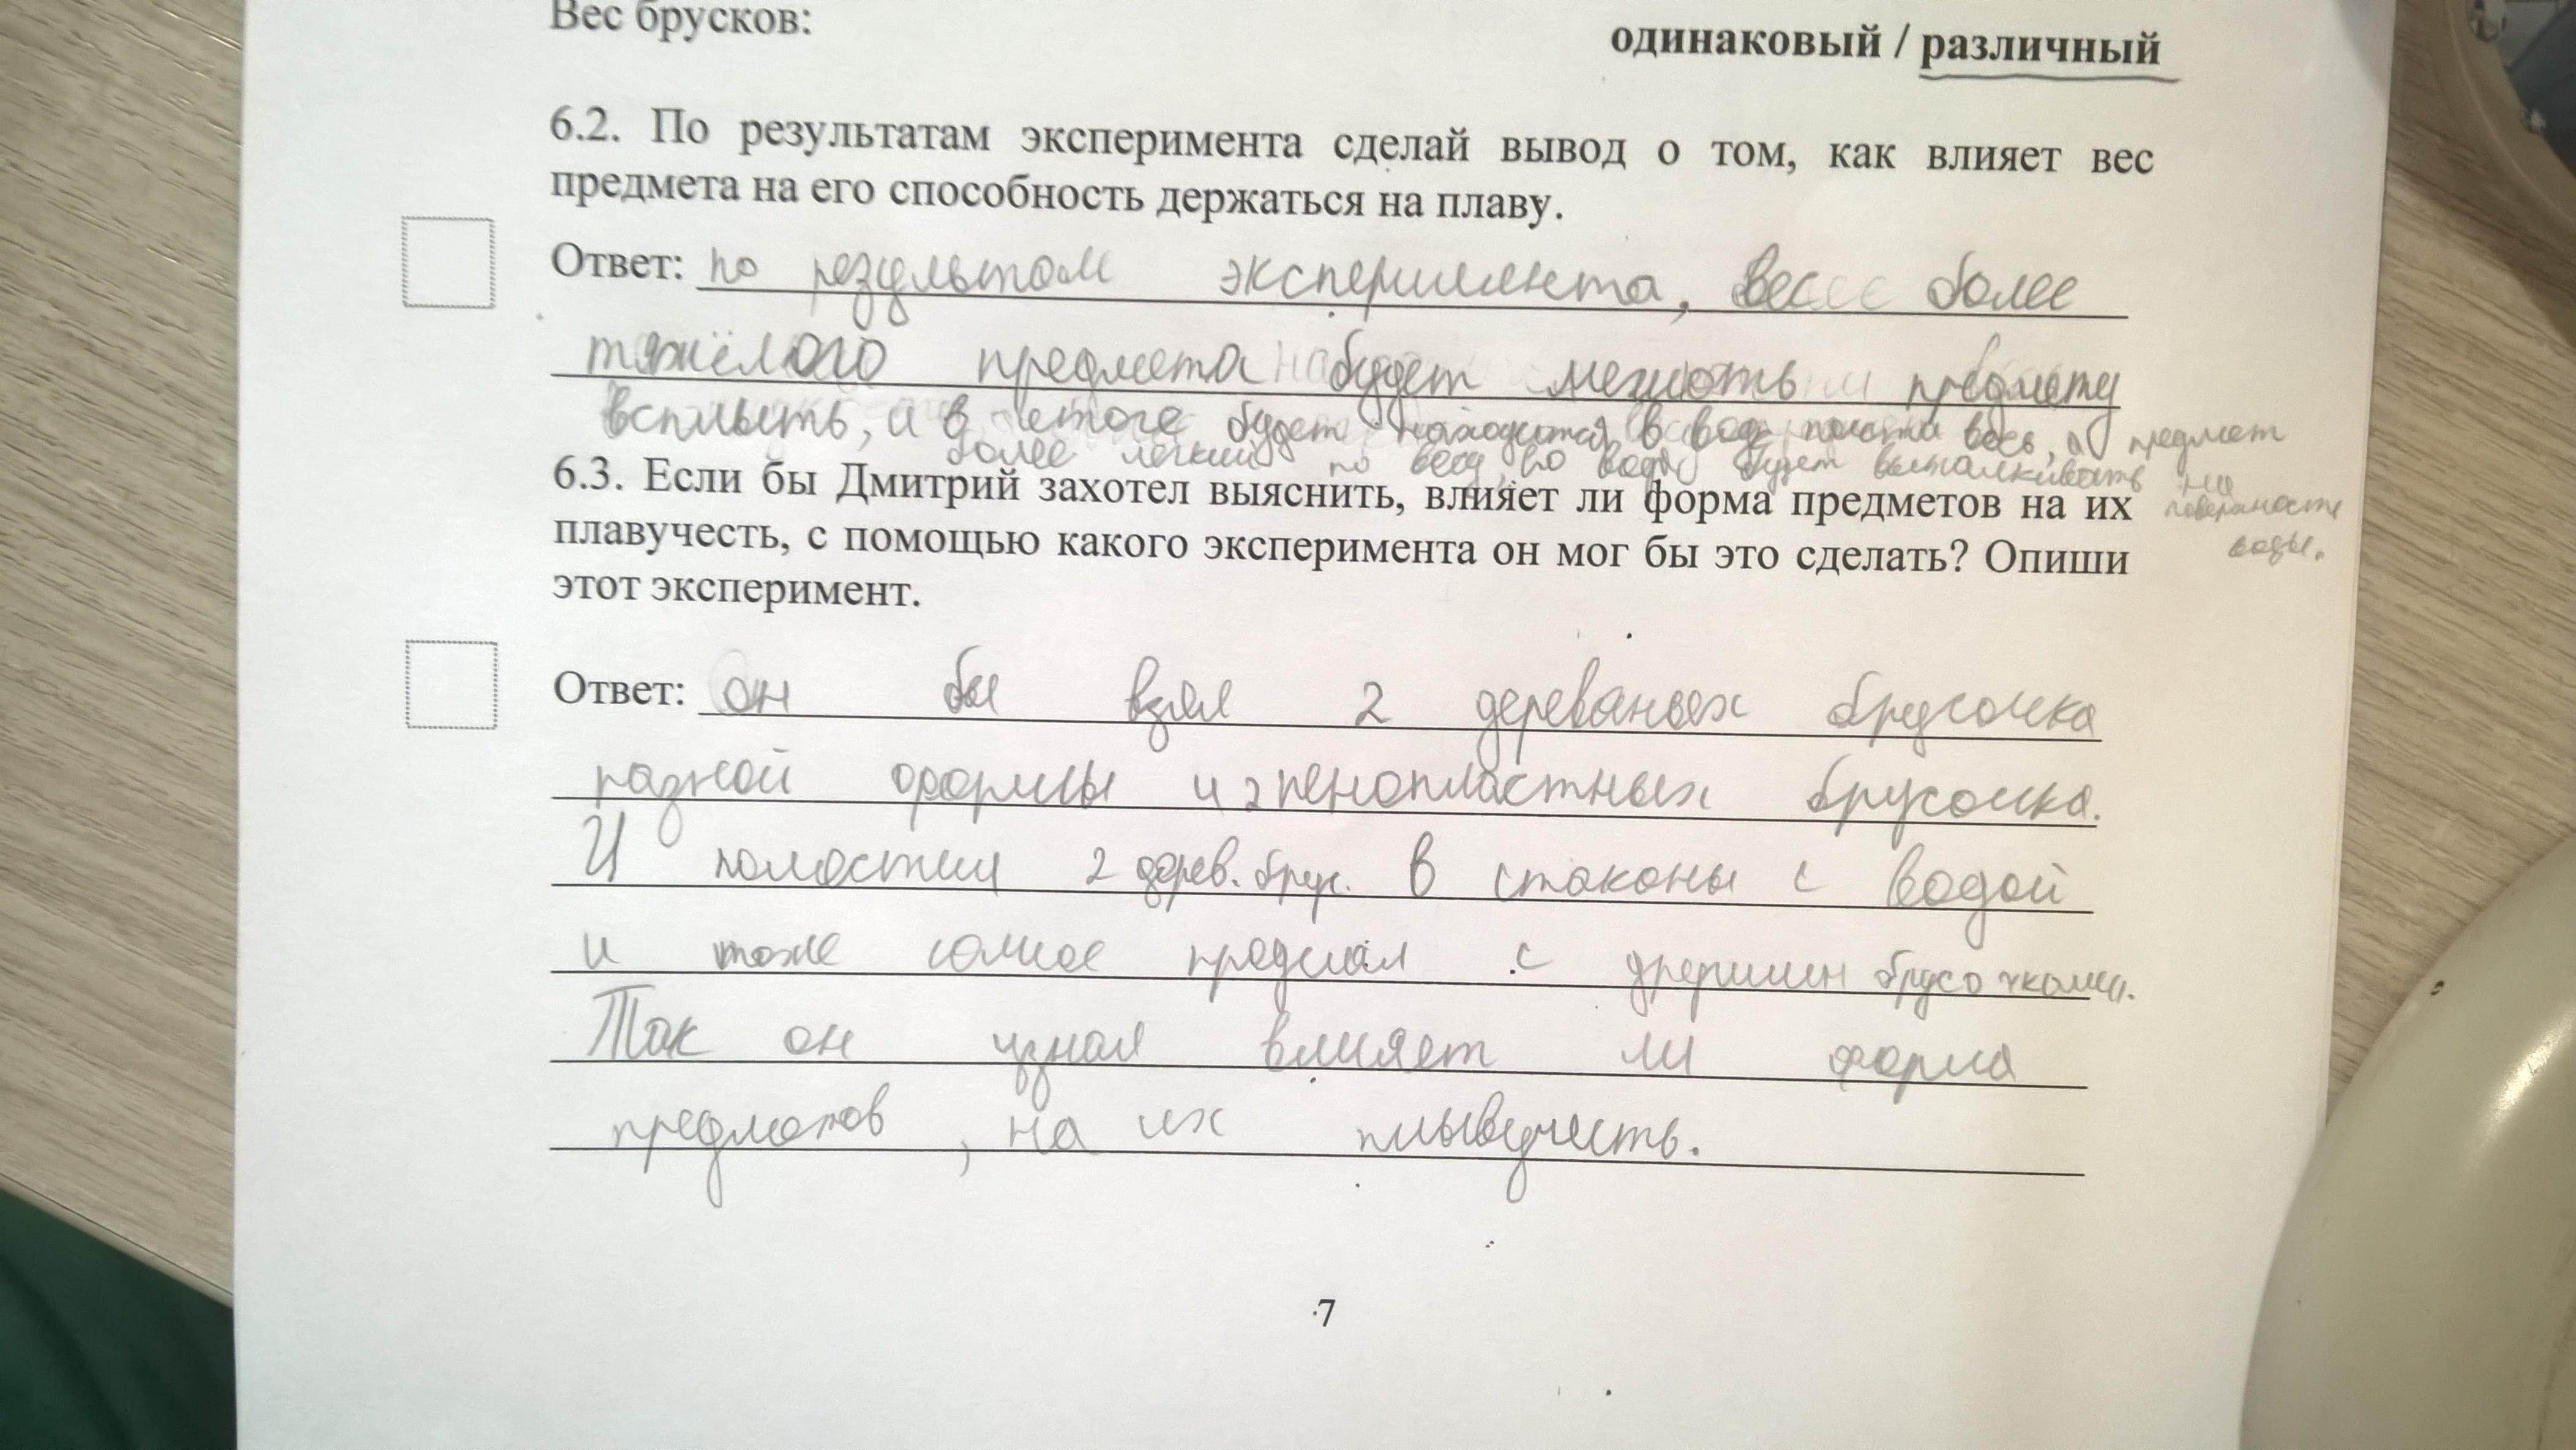 Вес брусков:
одинаковый / различный
6.2. По результатам эксперимента сделай вывод о том, как влияет вес
предмета на его способность держаться на плаву.
Ответ: по результатом эксперимента, вес более
тяжёлого предмета будет мешоть предмету
всплыть, и в итоге будет находится в воде почти весь, а предмет
более легкий по весу, то вода будет выталкивать на
поверхность
воды.
6.3. Если бы Дмитрий захотел выяснить, влияет ли форма предметов на их
плавучесть, с помощью какого эксперимента он мог бы это сделать? Опиши
этот эксперимент.
Ответ: он бы взял 2 дереваных брусочка
разной формы и 2 пенопластных брусочка.
И поместил 2 дерев. брус. в стаконы с водой
и тоже самое проделал с другими брусочками.
Так он узнал влияет ли форма
предметов, на их плывучесть.
7